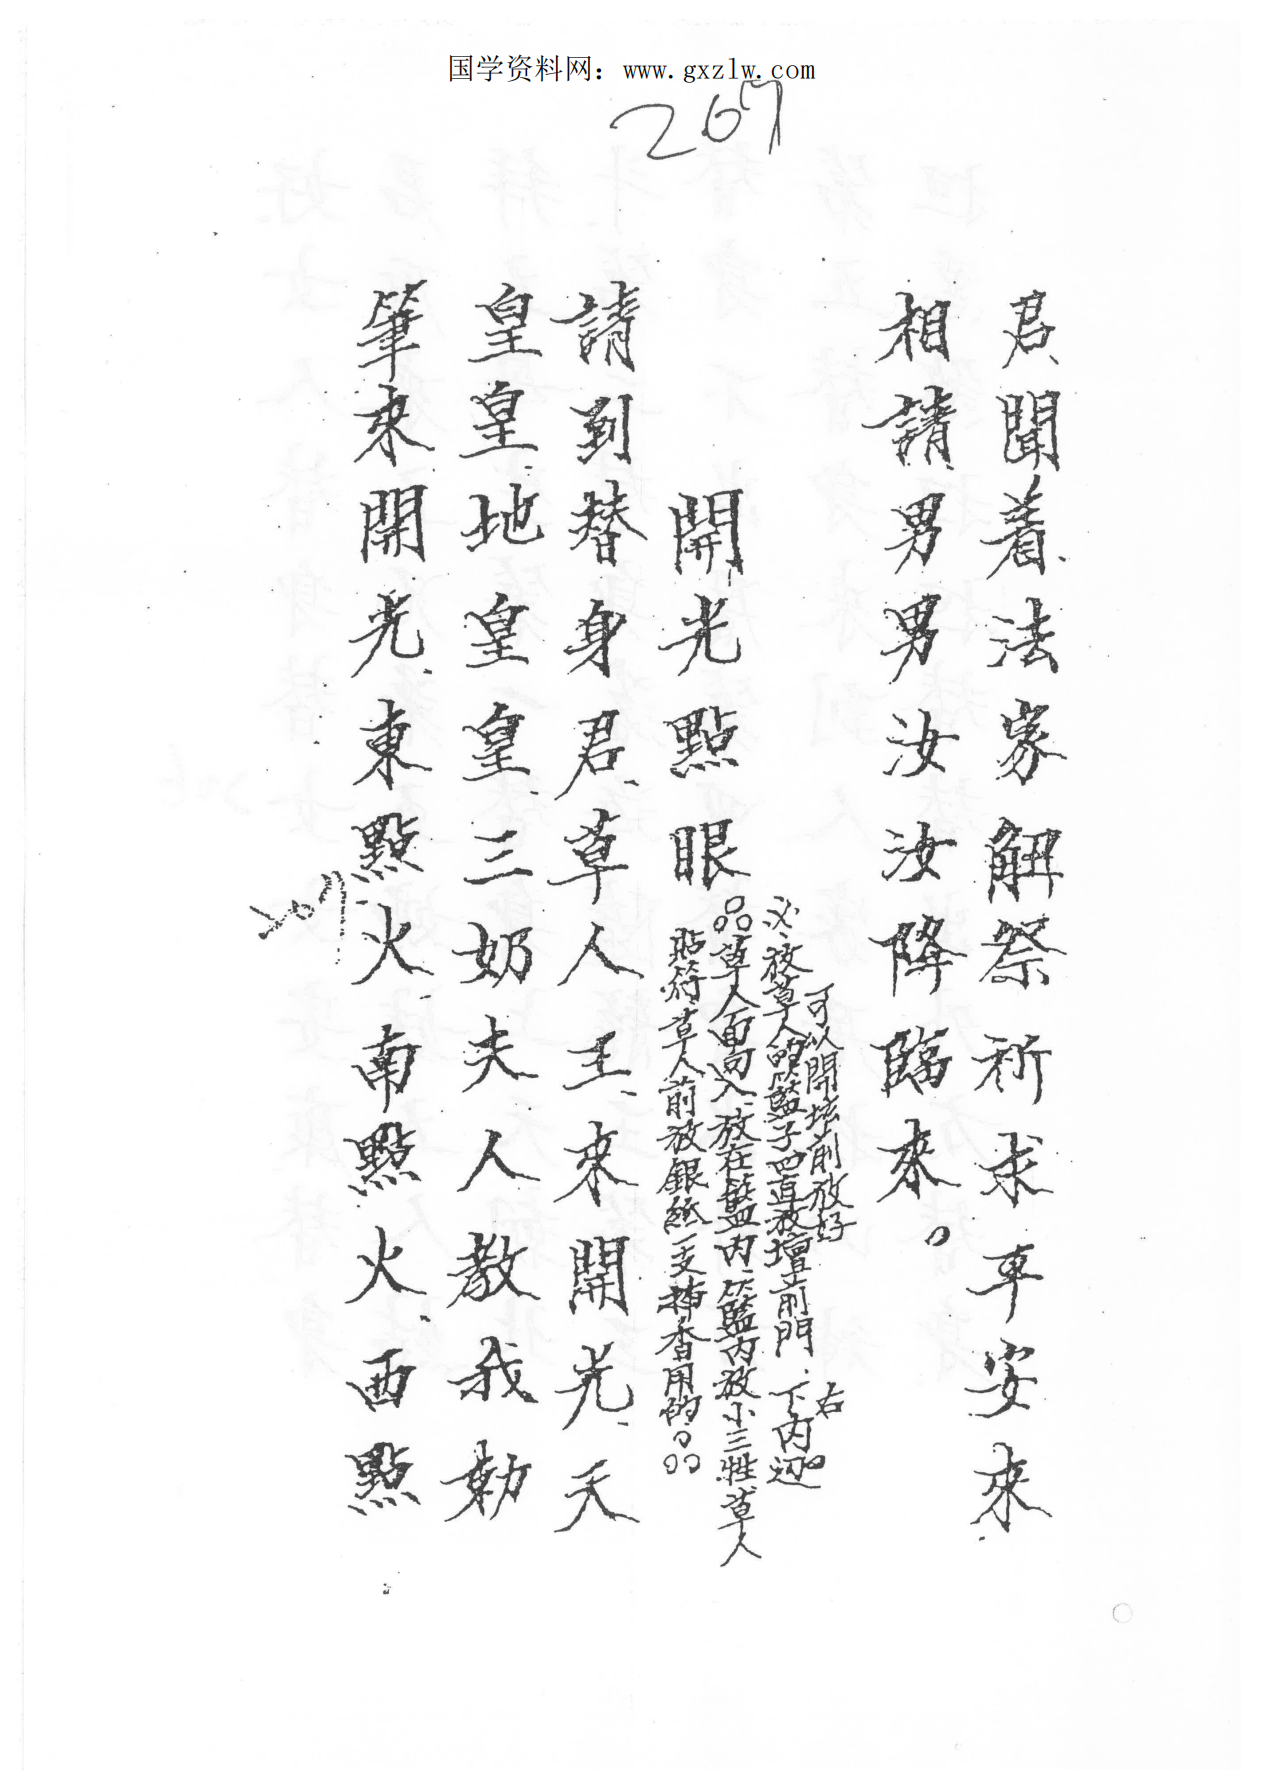 国学资料网：www.gxzlw.com
267
君聞着法家解祭祈求平安來
相請男男汝汝降臨來。
可以開壇前放好
必放草人的籃子四直放壇前門下內边
右
品草人面向入放在籃內籃內放小三牲草人
貼符草人前放銀紙一支挿香用的
開光點眼
請到替身君草人王來開光天
皇皇地皇皇三奶夫人教我勅
筆來開光東點火南點火西點
267